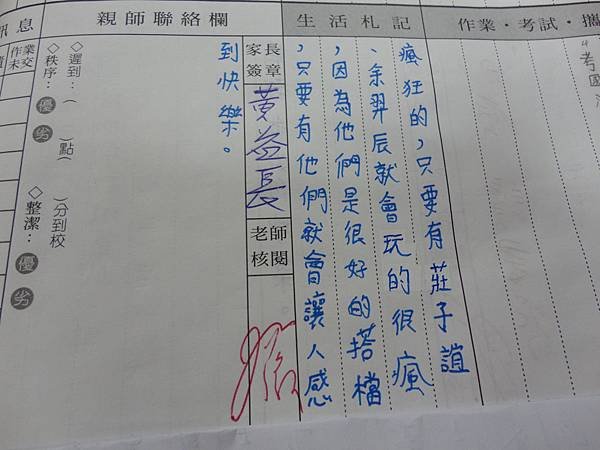 作業・考試・攜
考國
生活札記
瘋狂的，只要有莊子誼
、余羿辰就會玩的很瘋
，因為他們是很好的搭檔
，只要有他們就會讓人感
到快樂。
親師聯絡欄
家長
簽章
黃益長
老師
核閱
◇遲到：（　）點（　）分到校
◇秩序：優 劣
◇整潔：優 劣
訊息
作業
未交